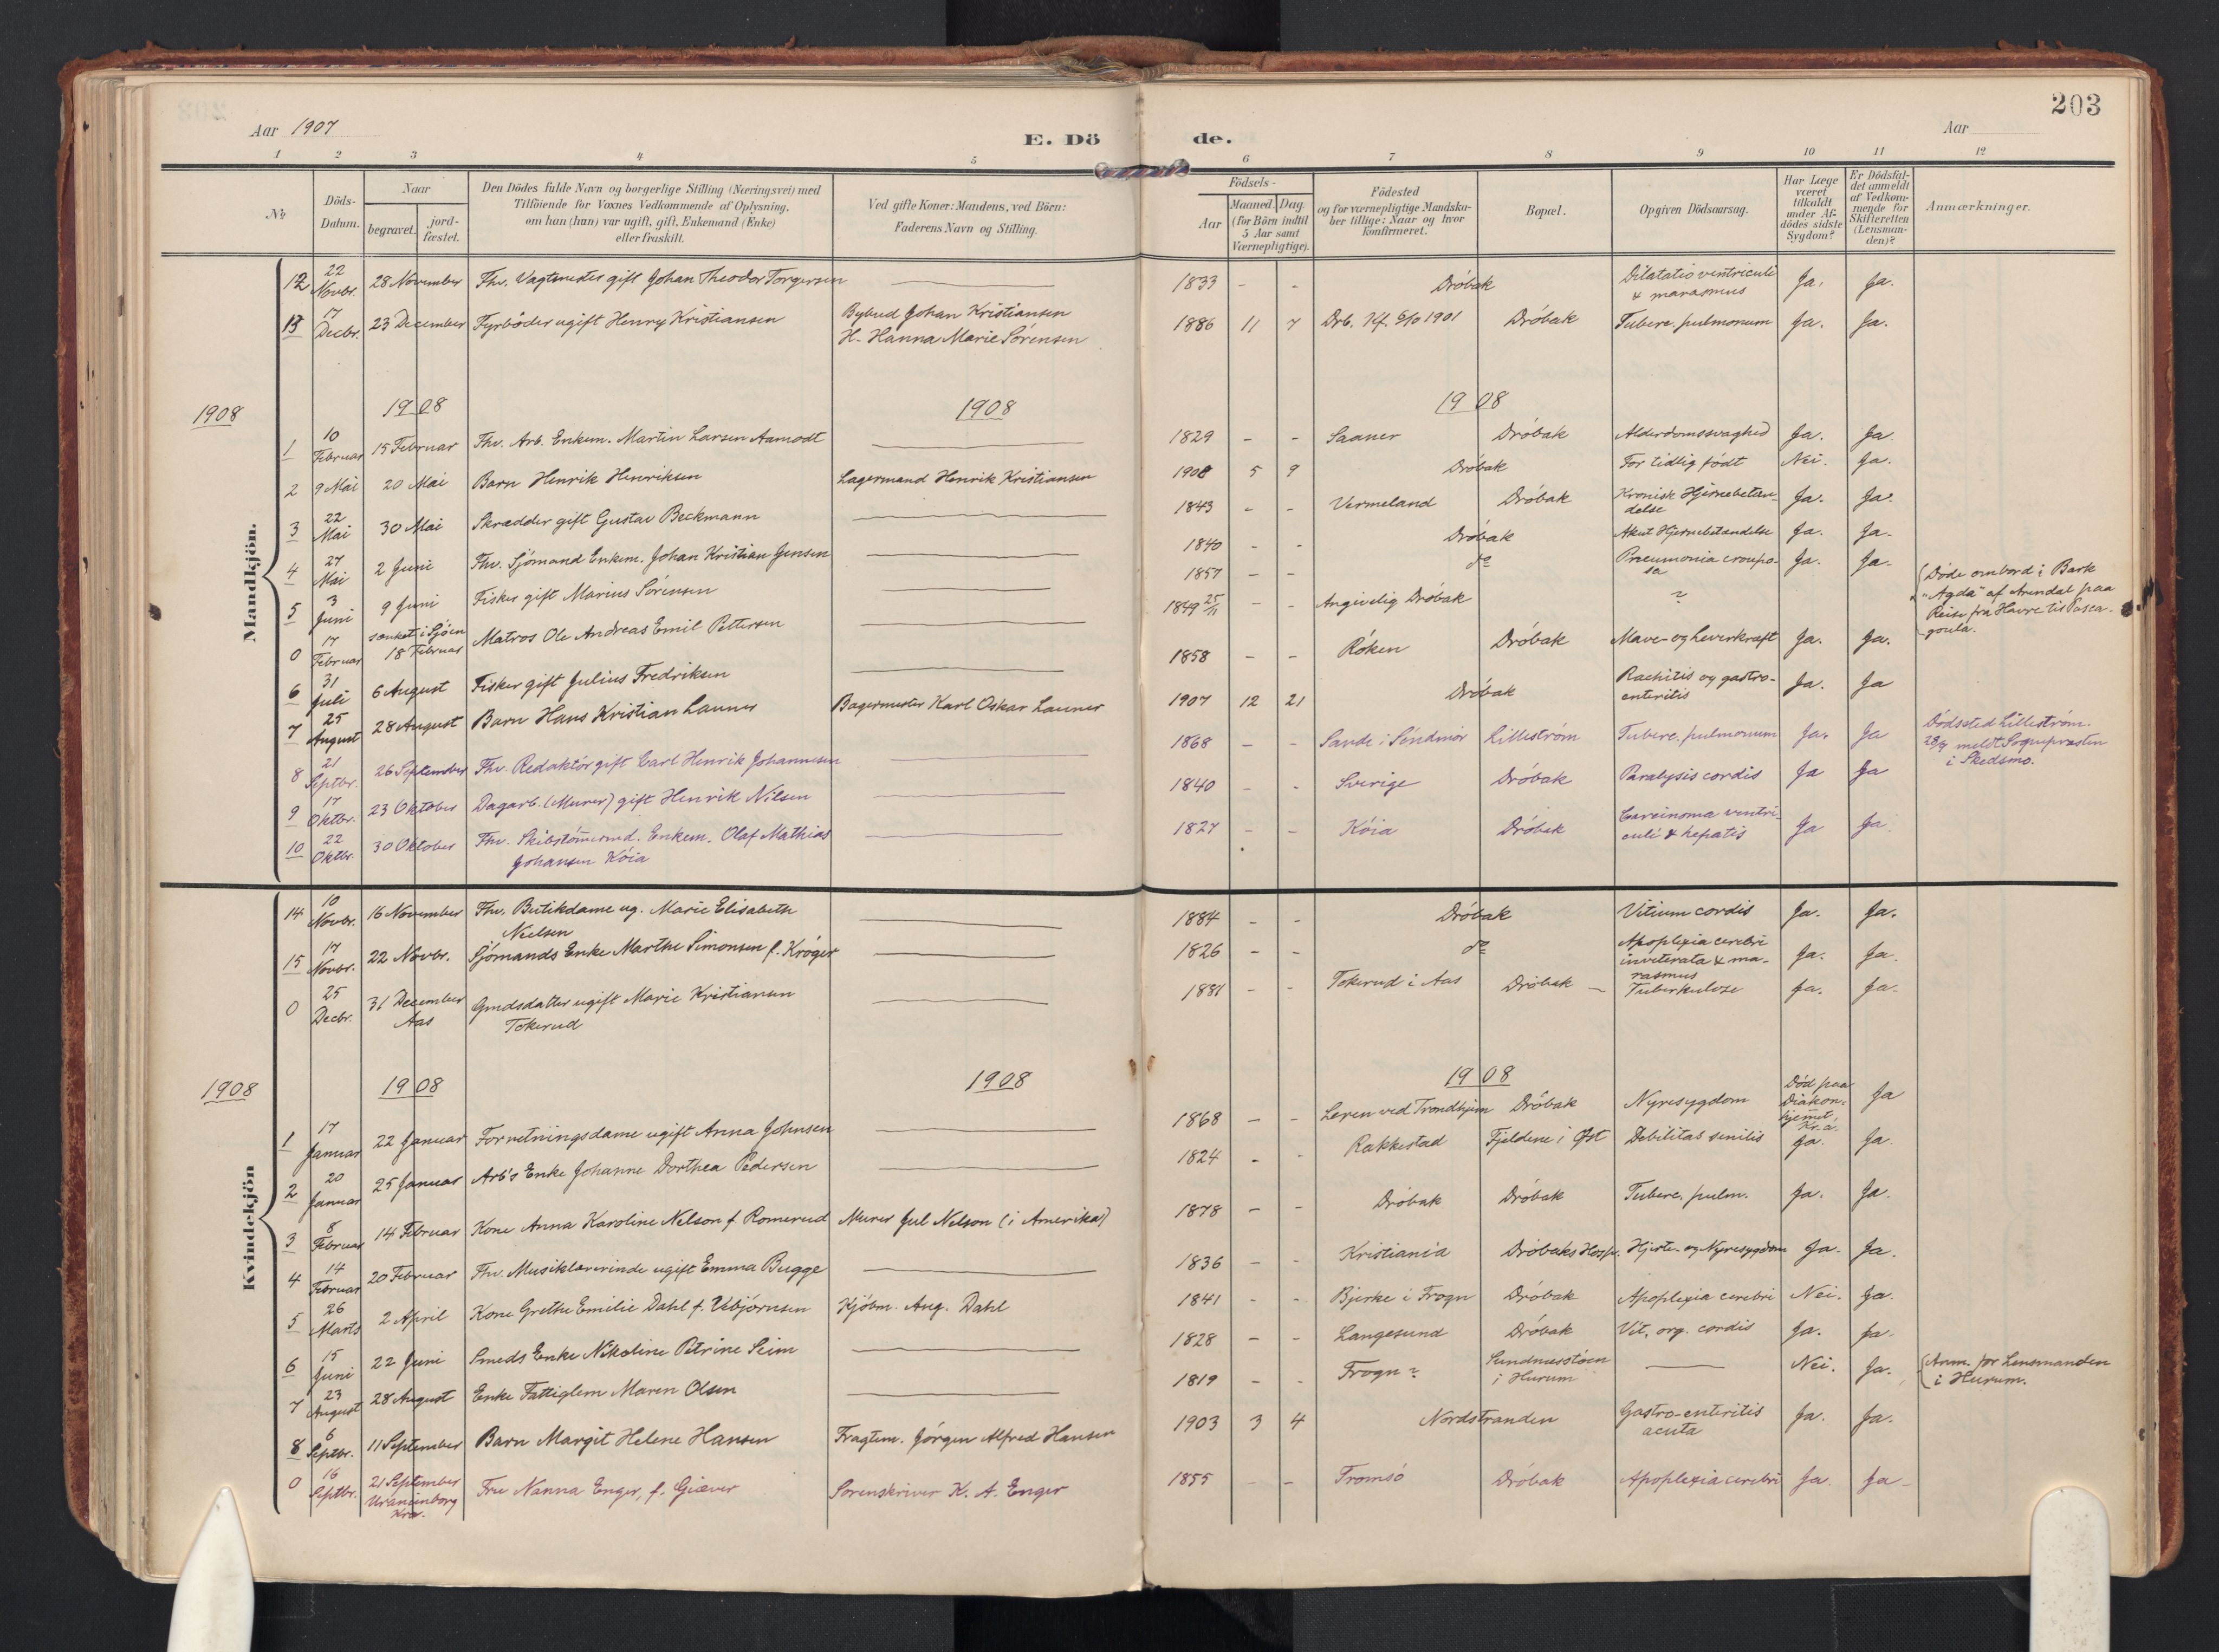 203
Aar 1907
E. Dö
de.
Aar
1 2 3 4 5 6 7 8 9 10 11 12
No
Döds-
Datum.
Naar
begravet.
jord-
fæstet.
Den Dödes fulde Navn og borgerlige Stilling (Næringsvei) med
Tilföiende for Voxnes Vedkommende af Oplysning,
om han (hun) var ugift, gift, Enkemand (Enke)
eller fraskilt.
Ved gifte Koner: Mandens, ved Börn:
Faderens Navn og Stilling.
Födsels-
Aar
Maaned. Dag.
(for Börn indtil
5 Aar samt
Værnepligtige).
Födested
og for værnepligtige Mandska-
ber tillige: Naar og hvor
konfirmeret.
Bopæl.
Opgiven Dödsaarsag.
Har Læge
været
tilkaldt
under Af-
dödes sidste
Sygdom?
Er Dödsfal-
det anmeldt
af Vedkom-
mende for
Skifteretten
(Lensman-
den)?
Anmærkninger.
Mandkjön.
12 22 Novbr. 28 November Fhv. Vagtmester gift Johan Theodor Torgersen 1833 - - Dröbak Dilatatio ventriculi & marasmus Ja. Ja.
13 17 Decbr. 23 December Fyrböder ugift Henry Kristiansen Bybud Johan Kristiansen
H. Hanna Marie Sörensen 1886 11 7 Drb. Kf. 6/10 1901 Dröbak Tuberc. pulmonum Ja. Ja.
1908 1908 1908 1908
1 10 Februar 15 Februar Fhv. Arb. Enkem. Martin Larsen Aamodt 1829 - - Saaner Dröbak Alderdomssvaghed Ja. Ja.
2 9 Mai 20 Mai Barn Henrik Henriksen Lagermand Henrik Kristiansen 1908 5 9 Dröbak For tidlig födt Nei. Ja.
3 22 Mai 30 Mai Skrædder gift Gustav Beckmann 1843 - - Vermeland Dröbak Kronisk Hjernebetæn-
delse Ja. Ja.
4 27 Mai 2 Juni Fhv. Sjömand Enkem. Johan Kristian Jensen 1840 - - Dröbak Akut Hjernebetændelse Ja. Ja.
5 3 Juni 9 Juni Fisker gift Marius Sörensen 1857 - - do Pneumonia croupo-
sa Ja. Ja.
0 17 Februar sænket i Sjöen
18 Februar Matros Ole Andreas Emil Pettersen 1849 25/11 - - Angivelig Dröbak ? Döde ombord i Bark
"Agda" af Arendal paa
Reise fra Havre til Pasca-
goula.
6 31 Juli 6 August Fisker gift Julius Fredriksen 1858 - - Röken Dröbak Mave- og Leverkræft Ja. Ja.
7 25 August 28 August Barn Hans Kristian Launer Bagermester Karl Oskar Launer 1907 12 21 Dröbak Rachitis og gastro-
enteritis Ja. Ja
8 21 Septbr. 26 September Fhv. Redaktör gift Carl Henrik Johannesen 1868 - - Sande i Söndmör Lilleström Tuberc. pulmonum Ja. Ja Dödssted Lilleström.
28/9 meldt Sognepræsten
i Skedsmo.
9 17 Oktbr. 23 Oktober Dagarb. (Murer) gift Henrik Nilsen 1840 - - Sverige Dröbak Paralysis cordis Ja Ja
10 22 Oktbr. 30 Oktober Fhv. Skibstömmermd. Enkem. Olaf Mathias
Johansen Köia 1827 - - Köia Dröbak Carcinoma ventri-
culi & hepatis Ja Ja
Kvindekjön
14 10 Novbr. 16 November Fhv. Butikdame ug. Marie Elisabeth
Nielsen 1884 - - Dröbak Vitium cordis Ja. Ja.
15 17 Novbr. 22 Novbr. Sjömands Enke Marthe Simonsen f. Kröger 1826 - - do Apoplexia cerebri
inveterata & ma-
rasmus Ja. Ja.
0 25 Decbr. 31 December
Aas Gmdsdatter ugift Marie Kristiansen
Tokerud 1881 - - Tokerud i Aas Dröbak Tuberkulose Ja. Ja.
1908 1908 1908 1908
1 17 Januar 22 Januar Forretningsdame ugift Anna Johnsen 1868 - - Leren ved Trondhjem Dröbak Nyresygdom Död paa
Diakon-
hjemmet,
Kr.a. Ja
2 20 Januar 25 Januar Arb's Enke Johanne Dorthea Pedersen 1824 - - Rakkestad Fjeldene i Øst Debilitas senilis Ja. Ja.
3 8 Februar 14 Februar Kone Anna Karoline Nelson f. Romerud Murer Jul Nelson (i Amerika) 1878 - - Dröbak Dröbak Tuberc. pulm. Ja. Ja.
4 14 Februar 20 Februar Fhv. Musiklærerinde ugift Emma Bugge 1836 - - Kristiania Dröbaks Hosp. Hjerte- og Nyresygdom Ja. Ja.
5 26 Marts 2 April Kone Grethe Emilie Dahl f. Esbjörnsen Kjöbm. Aug. Dahl 1841 - - Bjerke i Frogn Dröbak Apoplexia cerebri Nei. Ja.
6 15 Juni 22 Juni Smeds Enke Nikoline Petrine Seim 1828 - - Langesund Dröbak Vit. org. cordis Ja. Ja.
7 23 August 28 August Enke Fattiglem Maren Olsen 1819 - - Frogn ? i Hurum Nei. Ja. Anm. for Lensmanden
i Hurum.
8 6 Septbr. 11 September Barn Margit Helene Hansen Fragtem. Jörgen Alfred Hansen 1903 3 4 Nordstranden Gastro-enteritis
acuta Ja. Ja.
0 16 Septbr. 21 September
Uranienborg
Kra. Fru Nanna Enger, f. Giæver Sorenskriver K. A. Enger 1855 - - Tromsö Dröbak Apoplexia cerebri Ja. Ja